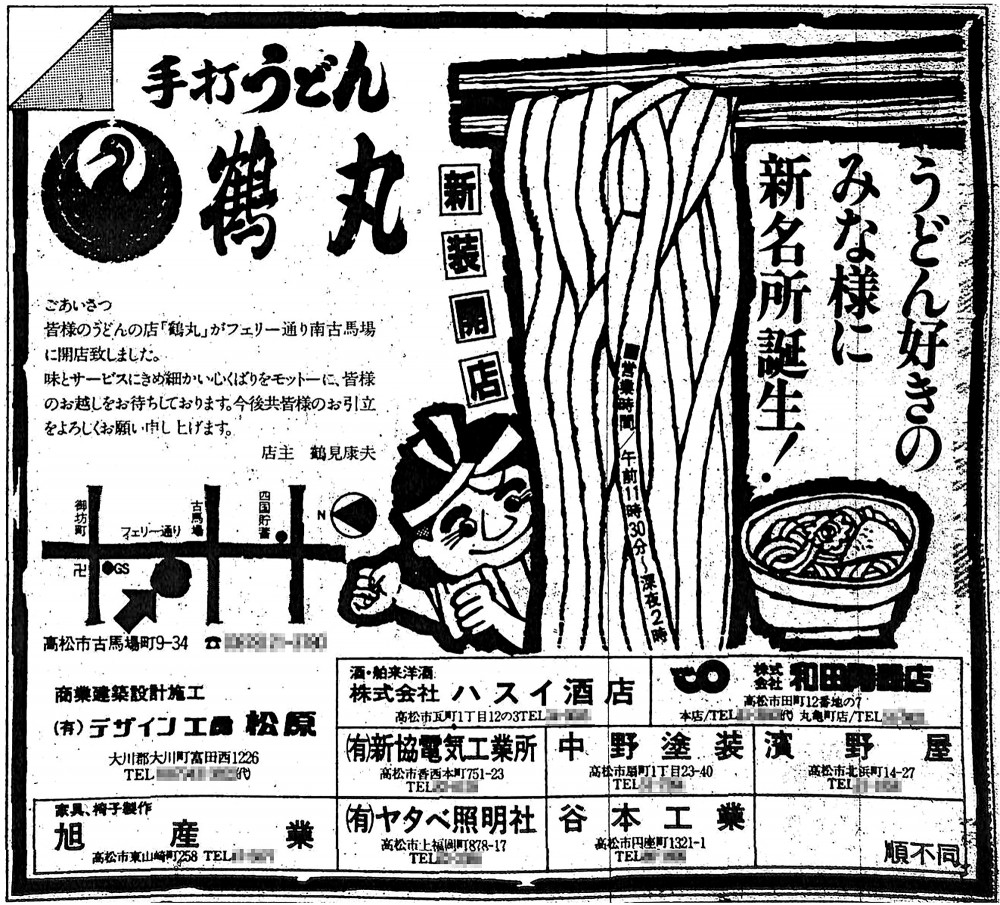 手打うどん
鶴丸
新装開店
うどん好きの
みな様に
新名所誕生!
ごあいさつ
皆様のうどんの店「鶴丸」がフェリー通り南古馬場
に開店致しました。
味とサービスにきめ細かい心くばりをモットーに、皆様
のお越しをお待ちしております。今後共皆様のお引立
をよろしくお願い申し上げます。
店主 鶴見康夫
■営業時間/午前11時30分〜深夜2時
御坊町
フェリー通り
古馬場
四国貯蓄
N
卍
GS
高松市古馬場町9-34 ☎
商業建築設計施工
(有)デザイン工房 松原
大川郡大川町富田西1226
TEL 代
家具、椅子製作
旭産業
高松市東山崎町258 TEL
酒・舶来洋酒
株式会社 ハスイ酒店
高松市瓦町1丁目12の3TEL
株式会社 和田陶器店
高松市田町12番地の7
本店/TEL 代 丸亀町店/TEL
(有)新協電気工業所
高松市香西本町751-23
TEL
中野塗装
高松市扇町1丁目23-40
TEL
濱野屋
高松市北浜町14-27
TEL
(有)ヤタベ照明社
高松市上福岡町878-17
TEL
谷本工業
高松市円座町1321-1
TEL
順不同